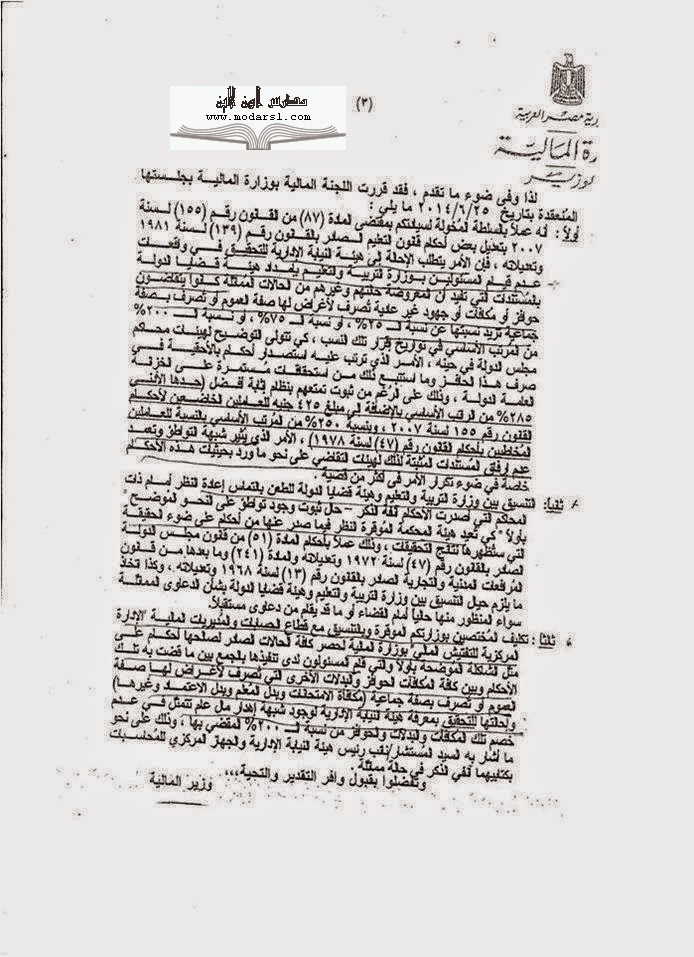 مدرس اون لاين
www.modars1.com
(٣)
رية مصر العربية
رة المالية
الوزير
لذا وفى ضوء ما تقدم ، فقد قررت اللجنة المالية بوزارة المالية بجلستها
المنعقدة بتاريخ ٢٠١٤/٦/٢٥ ما يلي :
أولاً : أنه عملاً بالسلطة المخولة لسيادتكم بمقتضى المادة (٨٧) من القانون رقم (١٥٥) لسنة
٢٠٠٧ بتعديل بعض أحكام قانون التعليم الصادر بالقانون رقم (١٣٩) لسنة ١٩٨١
وتعديلاته ، فإن الأمر يتطلب الإحالة إلى هيئة النيابة الإدارية للتحقيق في وقعات
عدم قيام المسئولين بوزارة التربية والتعليم بإمداد هيئة قضايا الدولة
بالمستندات التي تفيد أن المعروضة حالتهم وغيرهم من الحالات المماثلة كانوا يتقاضون
حوافز أو مكافآت أو جهود غير عادية تصرف لأغراض لها صفة العموم أو تصرف بصفة
جماعية تزيد نسبتها عن نسبة الـ ٢٥% ، أو نسبة الـ ٧٥% ، أو نسبة الـ ٢٠٠%
من المرتب الأساسي في تواريخ إقرار تلك النسب ، كي تتولى التوضيح لهيئات محاكم
مجلس الدولة في حينه ، الأمر الذي ترتب عليه استصدار أحكام بالأحقية في
صرف هذا الحافز وما استتبع ذلك من استحقاقات مستمرة على الخزانة
العامة للدولة ، وذلك على الرغم من ثبوت تمتعهم بنظام إثابة أفضل (حدها الأدنى
٢٨٥% من الراتب الأساسي بالإضافة إلى مبلغ ٤٢٥ جنيه للعاملين الخاضعين لأحكام
القانون رقم ١٥٥ لسنة ٢٠٠٧ ، وبنسبة ٢٥٠% من المرتب الأساسي بالنسبة للعاملين
المخاطبين بأحكام القانون رقم (٤٧) لسنة ١٩٧٨) ، الأمر الذي يثير شبهة التواطؤ وتعمد
عدم إرفاق المستندات المثبتة لذلك لهيئات التقاضي على نحو ما ورد بحيثيات هذه الأحكام
خاصة في ضوء تكرار الأمر في أكثر من قضية .
ثانياً: التنسيق بين وزارة التربية والتعليم وهيئة قضايا الدولة للطعن بالتماس إعادة النظر أمام ذات
المحاكم التي أصدرت الأحكام آنفة الذكر – حال ثبوت وجود تواطؤ على النحو الموضح "
بأولاً " كي تعيد هيئة المحكمة الموقرة النظر فيما صدر عنها من أحكام على ضوء الحقيقة
التي ستظهرها نتائج التحقيقات ، وذلك عملاً بأحكام المادة (٥١) من قانون مجلس الدولة
الصادر بالقانون رقم (٤٧) لسنة ١٩٧٢ وتعديلاته والمادة (٢٤١) وما بعدها من قانون
المرافعات المدنية والتجارية الصادر بالقانون رقم (١٣) لسنة ١٩٦٨ وتعديلاته . وكذا اتخاذ
ما يلزم حيال التنسيق بين وزارة التربية والتعليم وهيئة قضايا الدولة بشأن الدعاوى المماثلة
سواء المنظور منها حالياً أمام القضاء أو ما قد يقام من دعاوى مستقبلاً.
ثالثاً : تكليف المختصين بوزارتكم الموقرة وبالتنسيق مع قطاع الحسابات والمديريات المالية الإدارة
المركزية للتفتيش المالي بوزارة المالية لحصر كافة الحالات الصادر لصالحها أحكام على
مثل الشاكلة الموضحة بأولاً والتي قام المسئولون لدى تنفيذها بالجمع بين ما قضت به تلك
الأحكام وبين كافة المكافآت والحوافز والبدلات الأخرى التي تصرف لأغراض لها صفة
العموم أو تصرف بصفة جماعية (مكافأة الامتحانات وبدل المعلم وبدل الاعتماد وغيرها)
وإحالتها للتحقيق بمعرفة هيئة النيابة الإدارية لوجود شبهة إهدار مال عام تتمثل في عدم
خصم تلك المكافآت والبدلات والحوافز من نسبة الـ ٢٠٠% المقضي بها ، وذلك على نحو
ما أشار به السيد المستشار/نائب رئيس هيئة النيابة الإدارية والجهاز المركزي للمحاسبات
بكتابيهما آنفي الذكر في حالة مماثلة .
وتفضلوا بقبول وافر التقدير والتحية،،،
وزير المالية